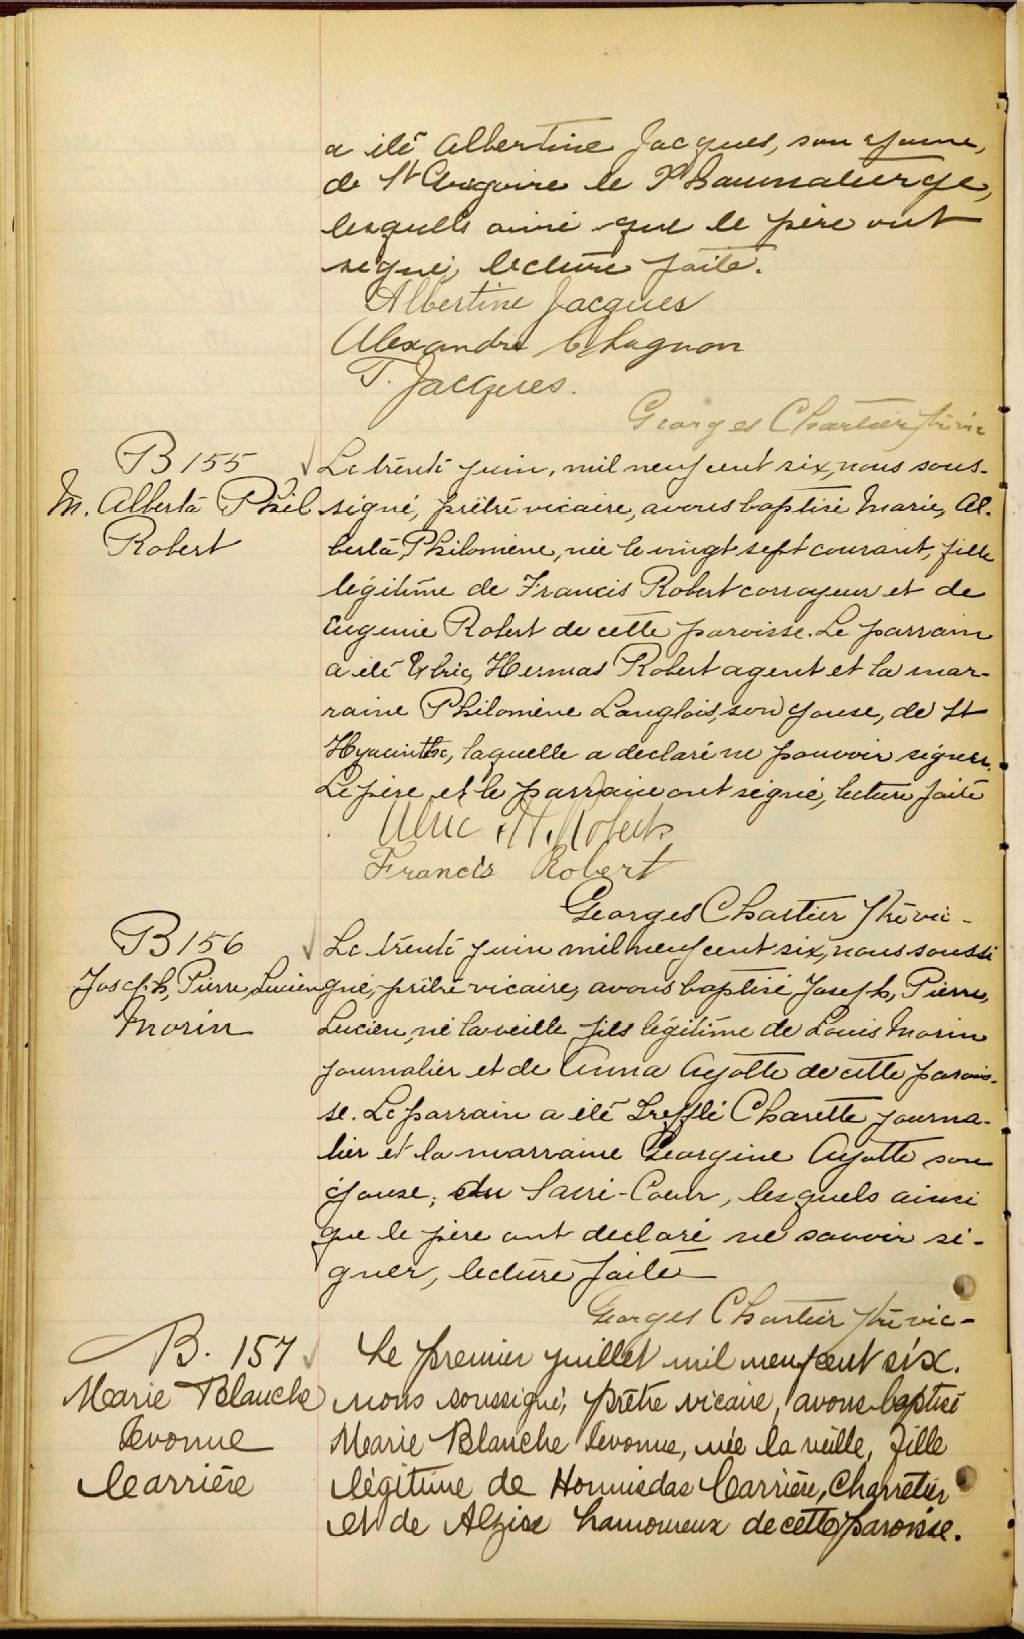 a été Albertine Jacques, son épouse,
de St Grégoire le Thaumaturge,
lesquels ainsi que le père ont
signé, lecture faite.
Albertine Jacques
Alexandre Chagnon
T. Jacques.
Georges Chartier ptre vic
B 155
M. Alberta Phil
Robert
Le trente juin, mil neuf cent six, nous sous-
signé, prêtre vicaire, avons baptisé Marie, Al-
berta, Philomène, née le vingt sept courant, fille
légitime de Francis Robert corroyeur et de
Eugenie Robert de cette paroisse. Le parrain
a été Ulric, Hermas Robert agent et la mar-
raine Philomène Langlois, son épouse, de St
Hyacinthe, laquelle a declaré ne pouvoir signer.
Le père et le parrain ont signé, lecture faite
Ulric H. Robert
Francis Robert
Georges Chartier ptre vic-
B 156
Joseph, Pierre, Lucien
Morin
Le trente juin mil neuf cent six, nous soussi
gné, prêtre vicaire, avons baptisé Joseph, Pierre,
Lucien, né la veille fils légitime de Louis Morin
journalier et de Anna Ayotte de cette parois-
se. Le parrain a été Trefflé Charette journa-
lier et la marraine Georgine Ayotte son
épouse, du Sacré-Coeur, lesquels ainsi
que le père ont declaré ne savoir si-
gner, lecture faite
Georges Chartier ptre vic-
B. 157
Marie Blanche
Yvonne
Carrière
Le premier juillet mil neuf cent six.
nous soussigné, prêtre vicaire, avons baptisé
Marie Blanche Yvonne, née la veille, fille
légitime de Hormisdas Carrière, Charretier
et de Alzire Lamoureux de cette paroisse.